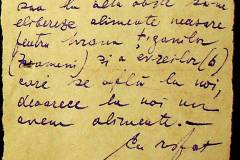 sau la altă obște să-ne
elibereze alimente necesare
pentru hrana țiganilor
(7 oameni) și a evreilor (6)
care se află la noi,
deoarece la noi nu
avem alimente.—